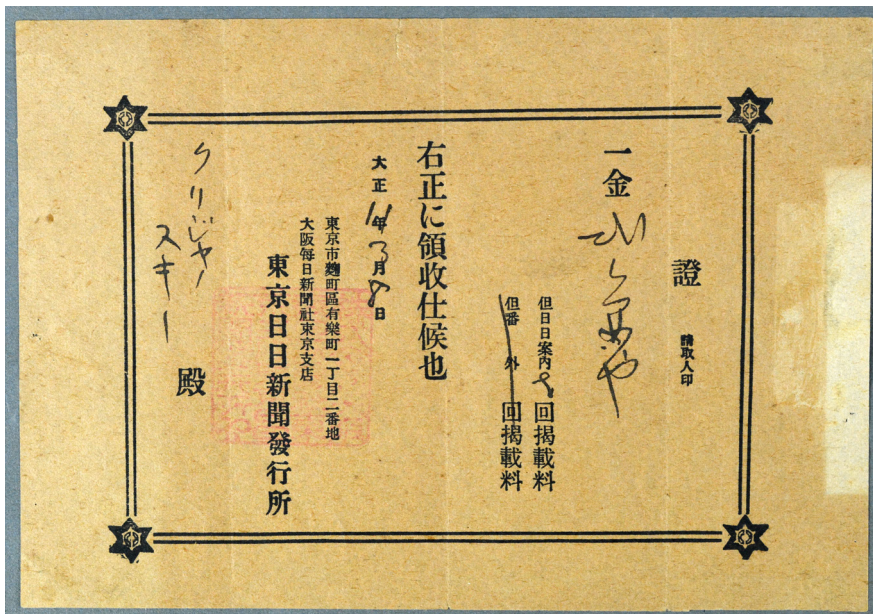 證 請取人印
一金
但日日案內 回揭載料
但番外 回揭載料
右正に領收仕候也
大正 年3月8日
東京市麴町區有樂町一丁目二番地
大阪每日新聞社東京支店
東京日日新聞發行所
クリジヤノ
スキー
殿